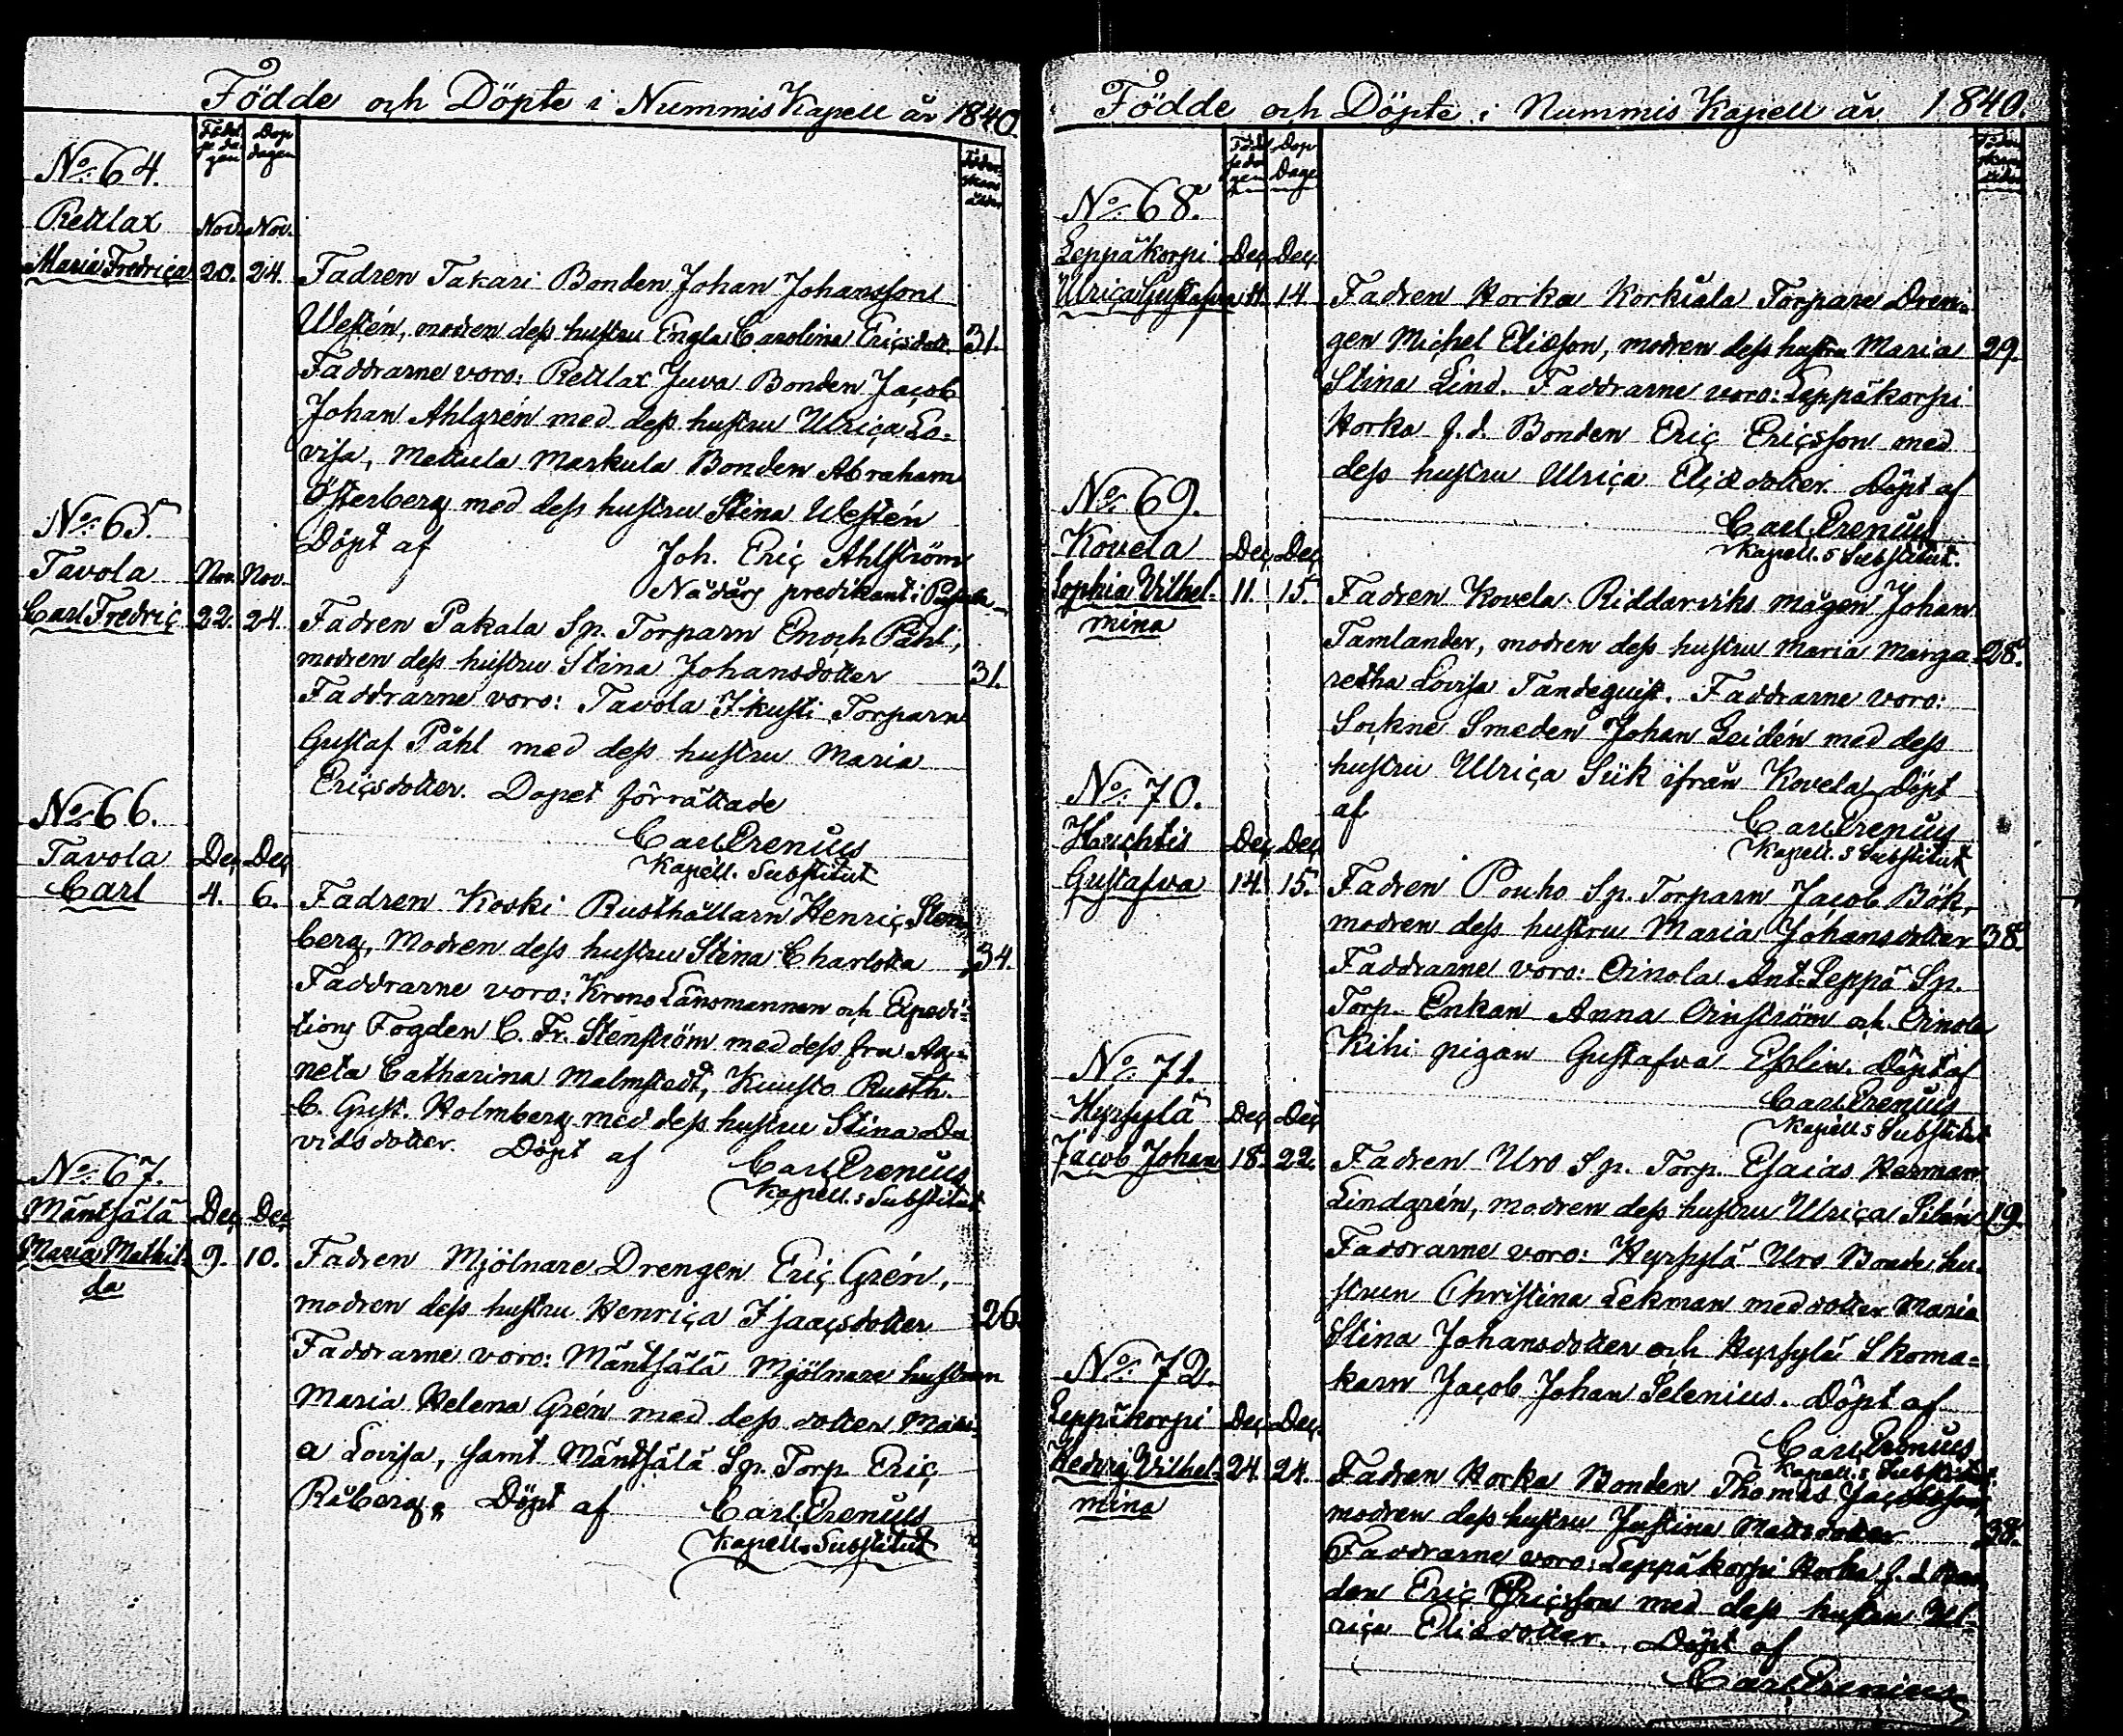 Födde och Döpte i Nummis Kapell år 1840.
Födel
se da
gen
Dop
dagen
Föder
skans
ålder
No. 64.
Rettlax
Nov. Nov.
Maria Fredrica 20. 24. Fadren Takari Bonden Johan Johansson
Westén, modren dess hustru Engla Carolina Ericsdott. 31.
Faddrarne voro: Rettlax Juva Bonden Jacob
Johan Ahlgrén med dess hustru Ulrica Lo-
visa, Mettula Markula Bonden Abraham
Österberg med dess hustru Stina Westén
Döpt af Joh. Eric Ahlström
Nådårs predikant i
No. 65.
Tavola Nov. Nov.
Carl Fredric 22. 24. Fadren Pakala Sp. Torparn Enoch Påhl,
modren dess hustru Stina Johansdotter 31.
Faddrarne voro: Tavola Ikusti Torparn
Gustaf Påhl med dess hustru Maria
Ericsdotter. Dopet förrättade
Carl Prenius
Kapell. Substitut
No. 66.
Tavola Dec. Dec.
Carl 4. 6. Fadren Koski Rusthållarn Henric Sten-
berg, Modren dess hustru Stina Charlotta 34.
Faddrarne voro: Krono Länsmannen och Expedi-
tions Fogden C. Fr. Stenström med dess fru Ag-
neta Catharina Malmstedt, Kuusto Rusth.
C. Gust. Holmberg med dess hustru Stina Da
vidsdotter. Döpt af Carl Prenius
Kapell.s Substitut
No. 67.
Mäntsälä Dec. Dec.
Maria Mathil- 9. 10. Fadren Mjölnare Drengen Eric Grén,
da
modren dess hustru Henrica Isaacsdotter 26.
Faddrarne voro: Mäntsälä Mjölnare hustrun
Maria Helena Grén med dess dotter Mari-
a Lovisa, samt Mäntsälä Sp. Torp. Eric
Råberg. Döpt af Carl Prenius
Kapell.s Substitut
Födde och Döpte i Nummis Kapell år 1840.
Födel
se da
gen
Dop
Dage
Föder
skans
ålder
No. 68.
Leppäkorpi Dec. Dec.
Ulrica Gustafva 11. 14. Fadren Horka Korkiala Torpare Dren-
gen Michel Eliasson, modren dess hustru Maria 29.
Stina Lind. Faddrarne voro: Leppäkorpi
Horka f.d. Bonden Eric Ericsson med
dess hustru Ulrica Eliædotter. Döpt af
Carl Prenius
Kapell.s Substitut.
No. 69.
Kovela Dec. Dec.
Sophia Vilhel- 11. 15. Fadren Kovela Riddarviks mågen Johan
mina
Tamlander, modren dess hustru Maria Marga- 28.
retha Lovisa Tandequist. Faddrarne voro:
Sockne Smeden Johan Leidén med dess
hustru Ulrica Siik ifrån Kovela. Döpt
af Carl Prenius
Kapell.s Substitut
No. 70.
Huchtis Dec. Dec.
Gustafva 14. 15. Fadren Pouho Sp. Torparn Jacob Bök,
modren dess hustru Maria Johansdotter 38.
Faddrarne voro: Oinola Ant. Leppä Sp.
Torp. Enkan Anna Oinström och Oinola
Kihi pigan Gustafva Eslin. Döpt af
Carl Prenius
Kapell.s Substitut
No. 71.
Hyrsylä Dec. Dec.
Jacob Johan 18. 22. Fadren Uro Sp. Torp. Esaias Herman
Lindgrén, modren dess hustru Ulrica Silén 19.
Faddrarne voro: Hyrsylä Uro Bonde hu-
strun Christina Lekman med dotter Maria
Stina Johansdotter och Hyrsylä Skoma-
karn Jacob Johan Selenius. Döpt af
Carl Prenius
Kapell.s Substitut
No. 72.
Leppäkorpi Dec. Dec.
Hedvig Vilhel- 24. 24. Fadren Horka Bonden Thomas Jacobsson,
mina
modren dess hustru Justina Mattsdotter 38.
Faddrarne voro: Leppäkorpi Horka f.d. Bon-
den Eric Ericsson med dess hustru Ul-
rica Eliædotter. Döpt af
Carl Prenius